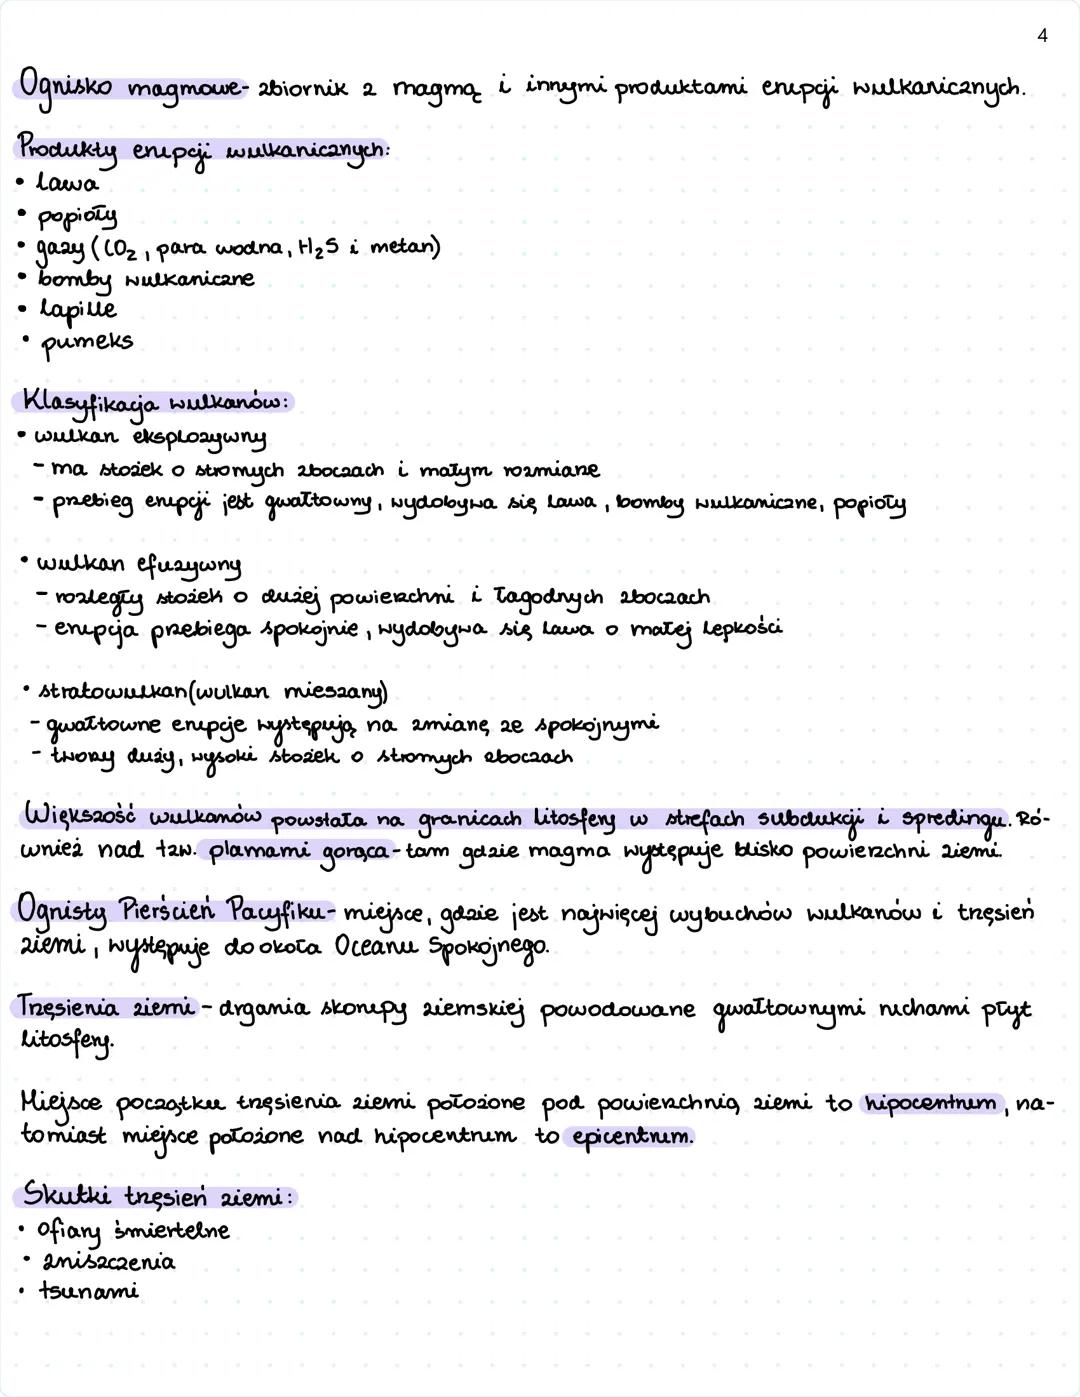 4
Ognisko magmowe- zbiornik z magmą i innymi produktami erupcji wulkanicznych.
Produkty erupcji wulkanicznych:
• lawa
• popioły
• gazy (CO₂, para wodna, H₂S i metan)
• bomby wulkaniczne
• lapille
• pumeks
Klasyfikacja wulkanów:
• wulkan eksplozywny
- ma stożek o stromych zboczach i małym rozmiarze
- przebieg erupcji jest gwałtowny, wydobywa się lawa, bomby wulkaniczne, popioły
• wulkan efuzywny
- rozległy stożek o dużej powierzchni i łagodnych zboczach
- erupcja przebiega spokojnie, wydobywa się lawa o małej lepkości
• stratowulkan(wulkan mieszany)
- gwałtowne erupcje występują na zmianę ze spokojnymi
- tworzy duży, wysoki stożek o stromych zboczach
Większość wulkanów powstała na granicach litosfery w strefach subdukcji i spredingu. Ró-
wnież nad tzw. plamami gorąca- tam gdzie magma występuje blisko powierzchni ziemi.
Ognisty Pierścień Pacyfiku- miejsce, gdzie jest najwięcej wybuchów wulkanów i trzęsień
ziemi, występuje do okoła Oceanu Spokojnego.
Trzęsienia ziemi- drgania skorupy ziemskiej powodowane gwałtownymi ruchami płyt
litosfery.
Miejsce początku trzęsienia ziemi położone pod powierzchnią ziemi to hipocentrum, na-
tomiast miejsce położone nad hipocentrum to epicentrum.
Skutki trzęsień ziemi:
• ofiary śmiertelne
• zniszczenia
• tsunami